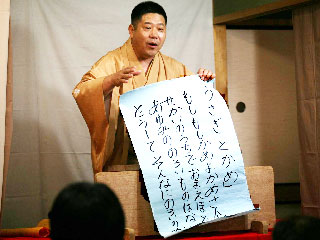 うさぎ とかめ
もしもしかめよかめさん
せかいのうちでおまえほど
あゆみののろいものはな
どうしてそんなにのろいの